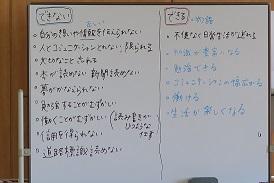 できない
自分の想いや情報を伝えられない
人とコミュニケーションとれない、限られる
大切なこと忘れる
本が読めない 新聞読めない
夢がかなえられない
勉強することがむずかしい
働くことがむずかしい (読み書きが
ひつような
仕事
信用を得られない
道路標識読めない
できる
不便なく日常生活がおくれる
知識が豊富になる
勉強できる
コミュニケーションの幅が広がる
働ける
生活が楽しくなる